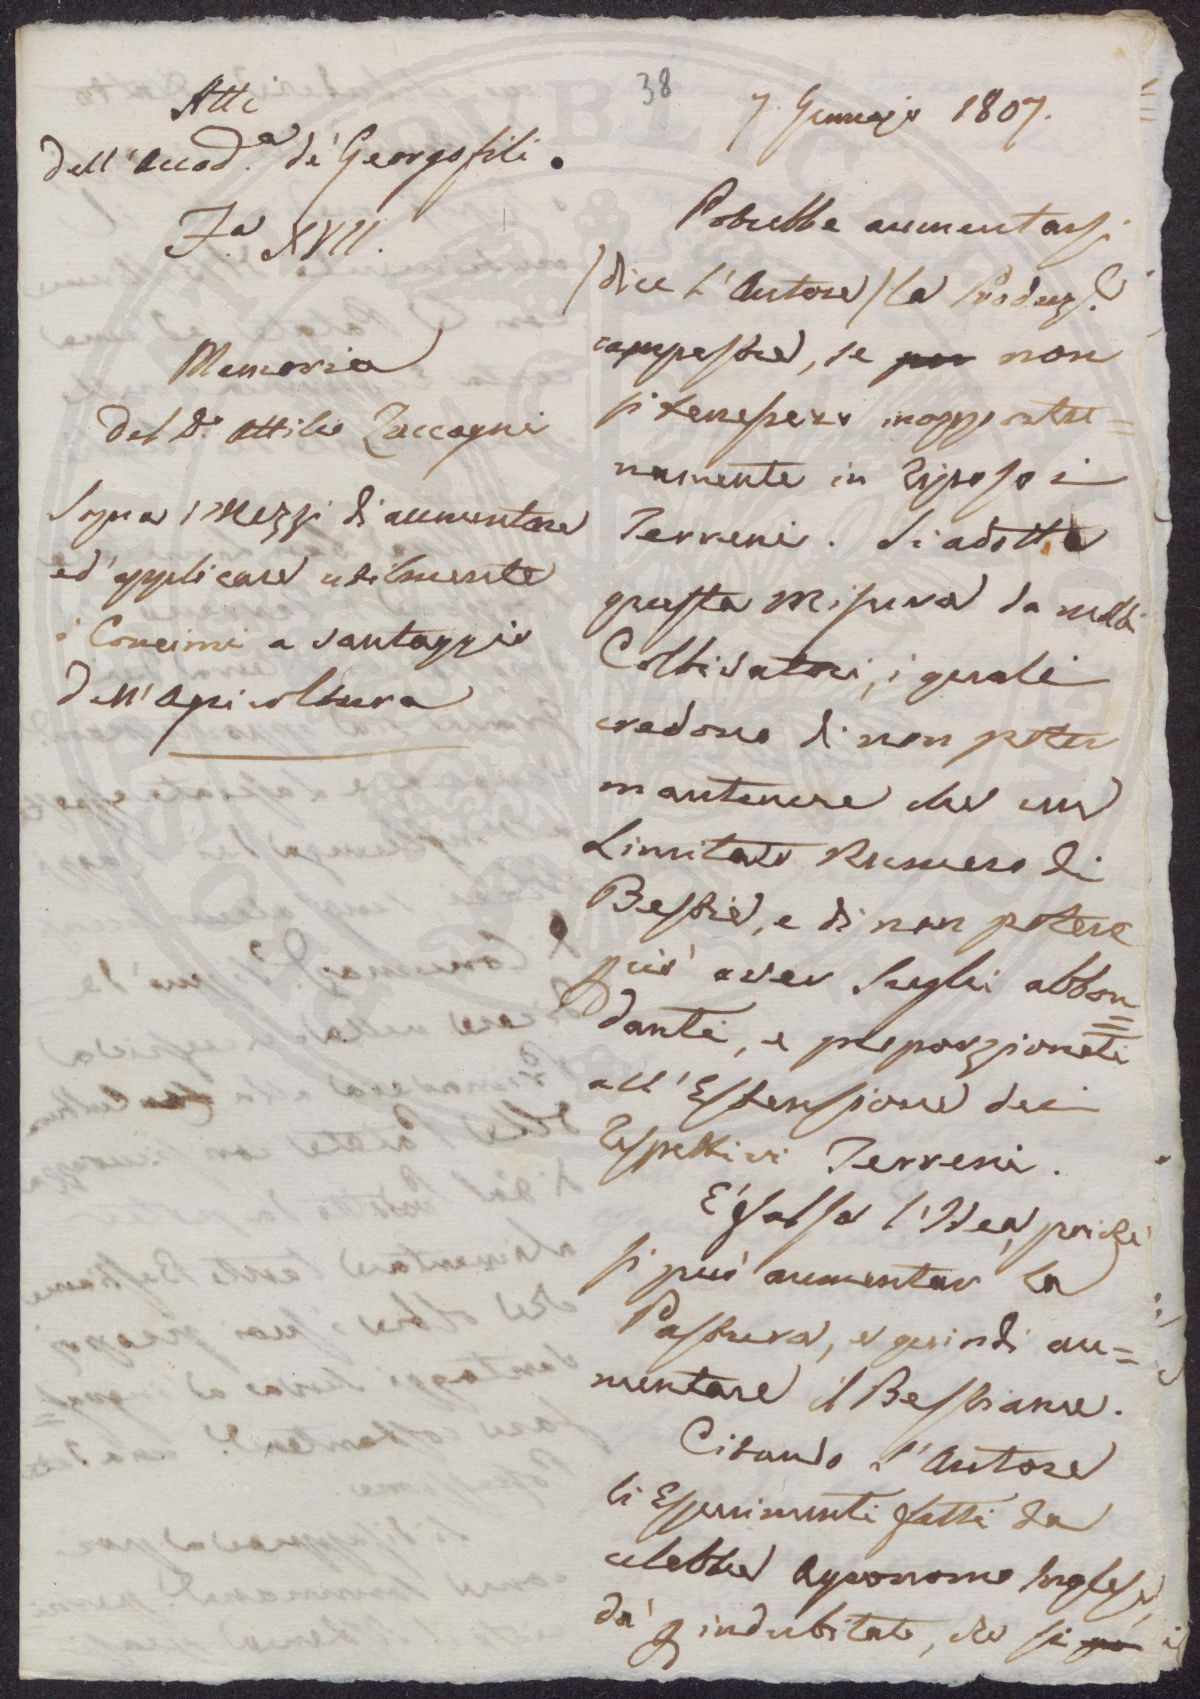 38
Atti
dell'Accad.a de' Georgofili.
T.a XVII.
Memoria
del D.r Attilio Zuccagni
Sopra i Mezzi di aumentare
ed applicare utilmente
i Concimi a vantaggio
dell'Agricoltura
7. Gennajo 1807.
Potrebbe aumentarsi
(dice l'Autore) la Produz.e
campestre, se per non
si tenessero inopportu=
namente in Riposo i
Terreni. Si adotta
questa Misura da molti
Coltivatori, i quali
credono di non poter
mantenere che un
Limitato Numero di
Bestie, e di non potere
quì aver Sughi abbon=
danti, e proporzionati
all'Estensione dei
Respettivi Terreni.
E' falsa l'Idea, poichè
si può aumentar la
Pastura, e quindi au=
mentare il Bestiame.
Citando l'Autore
li Esperimenti fatti da
celebre Agronomo Inglese,
dà p indubitato, che si